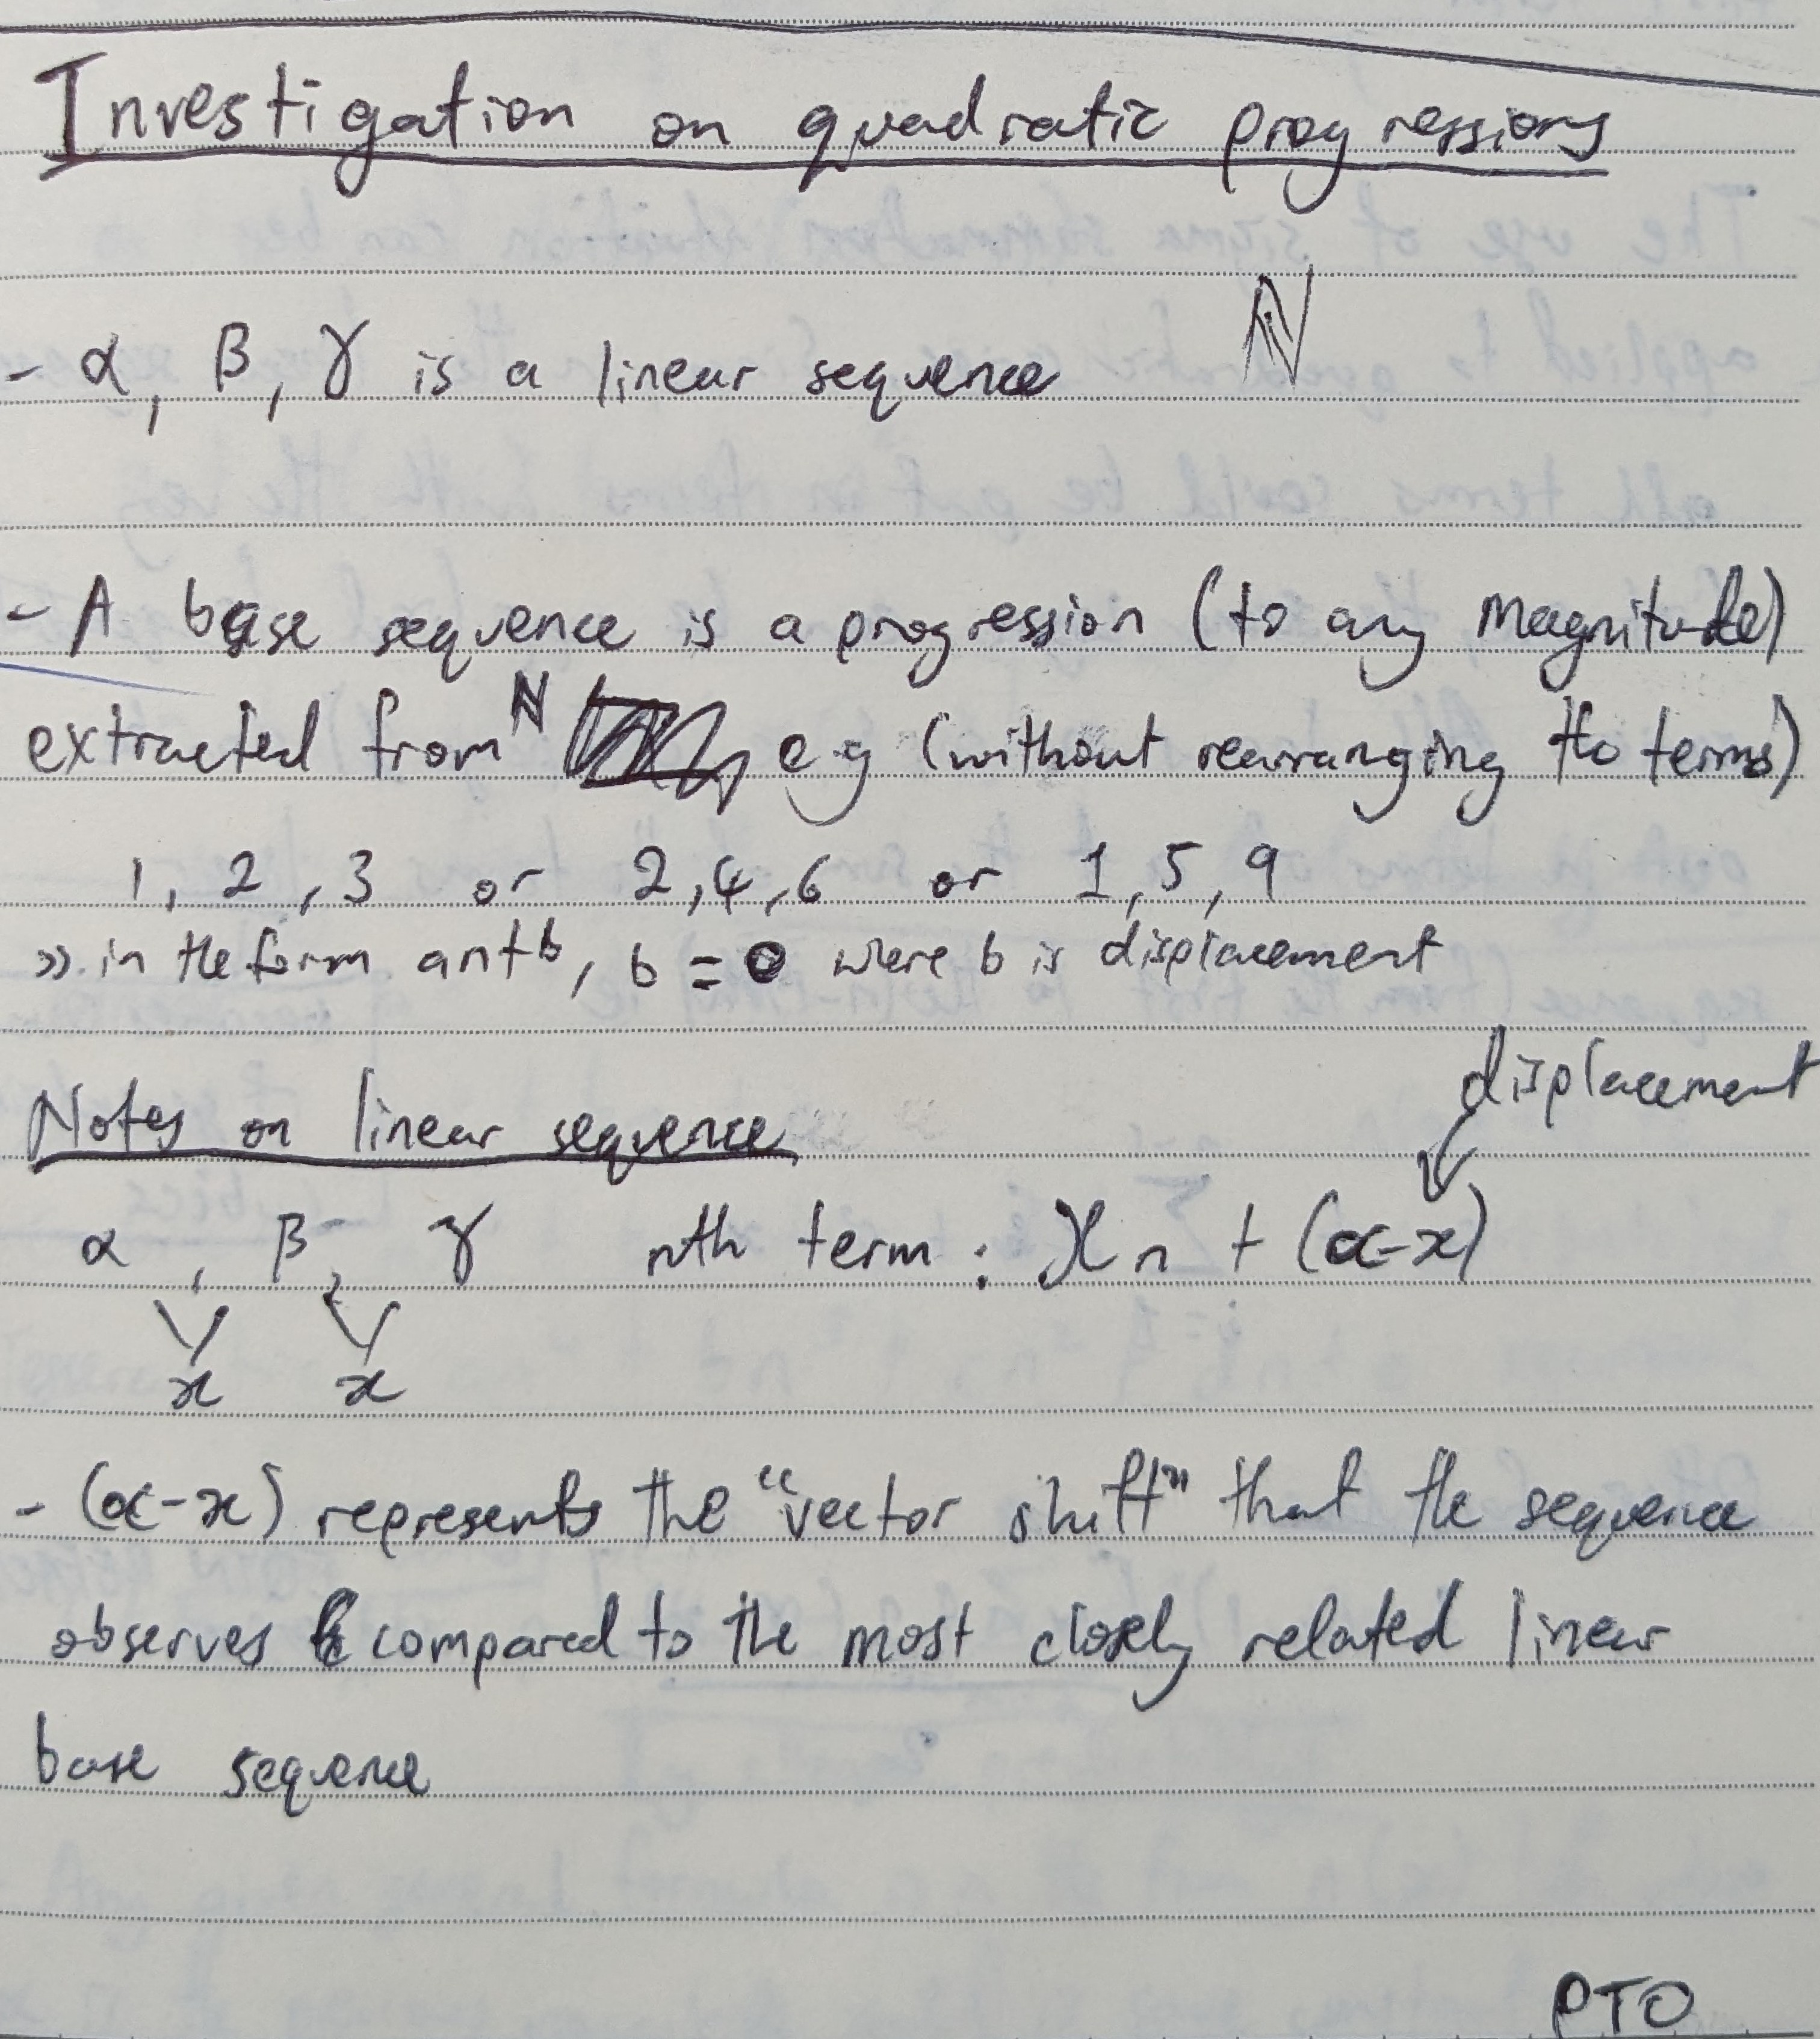 Investigation on quadratic progressions
- α, β, γ is a linear sequence ℕ
- A base sequence is a progression (to any magnitude)
extracted from ℕ e.g (without rearranging the terms)
1, 2, 3 or 2, 4, 6 or 1, 5, 9
>> in the form an+b, b = 0 where b is displacement
displacement
Notes on linear sequence
α, β, γ nth term : xn + (α-x)
x x
- (α-x) represents the "vector shift" that the sequence
observes compared to the most closely related linear
base sequence
PTO